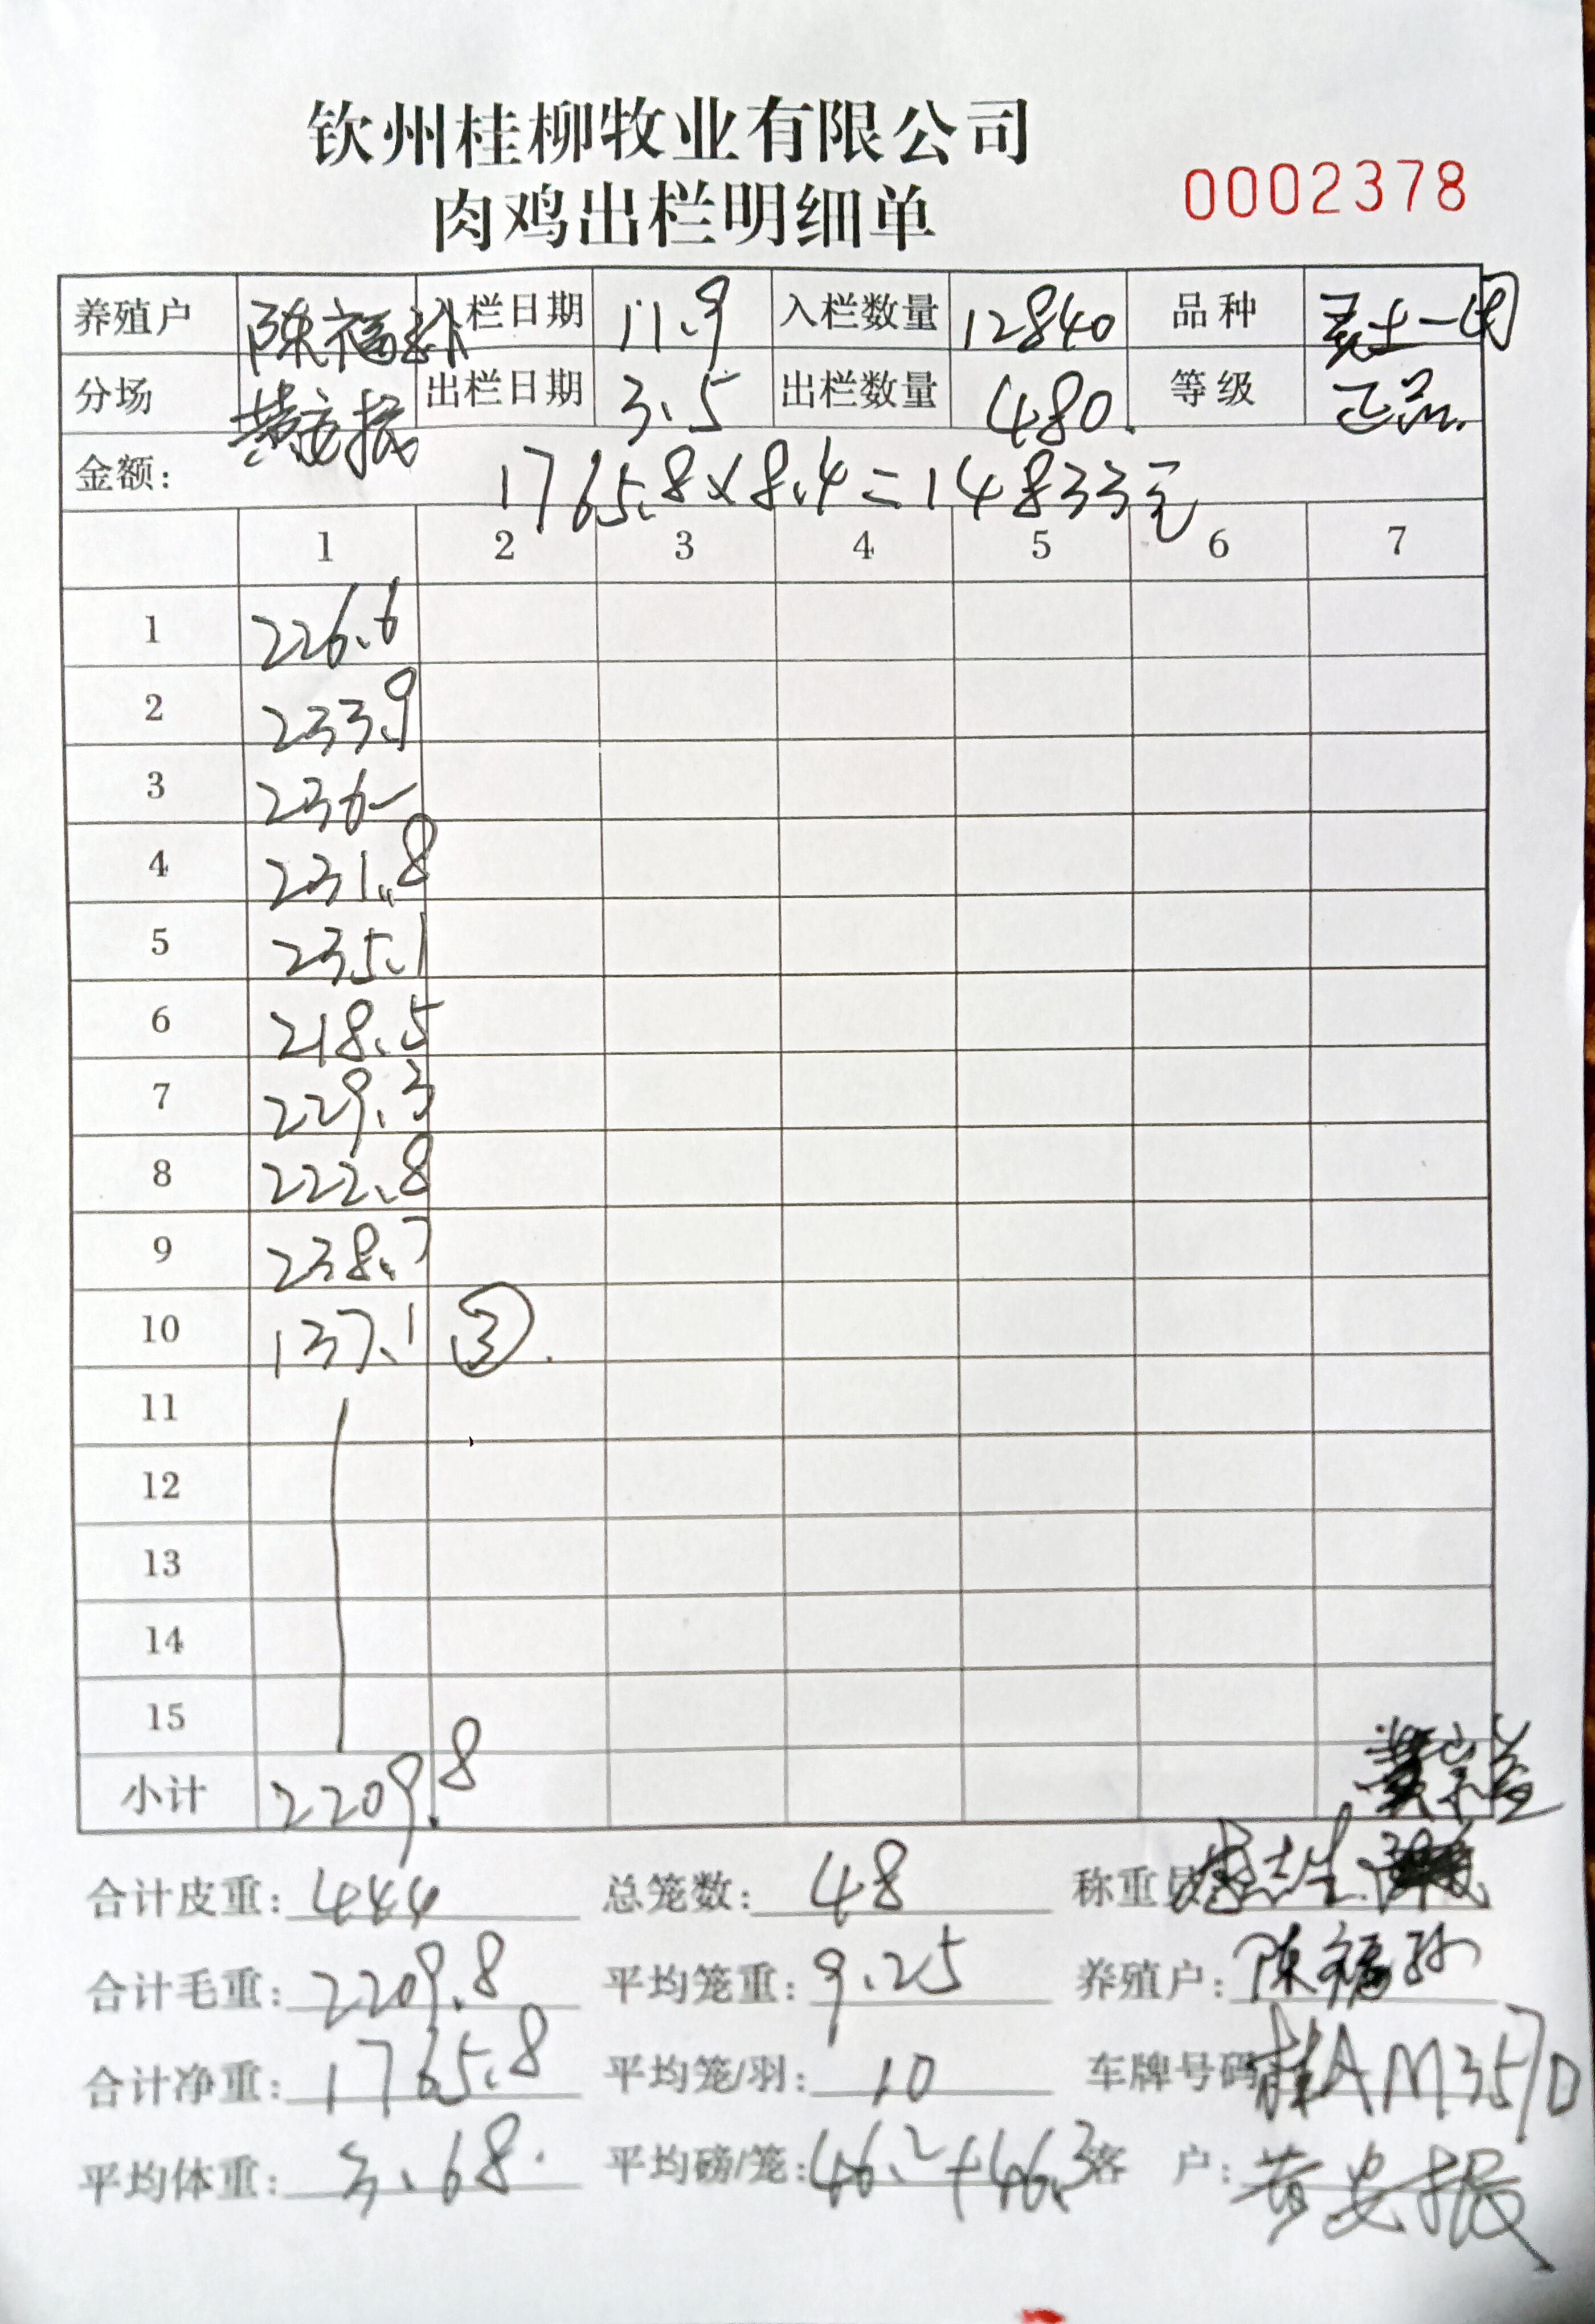 钦州桂柳牧业有限公司
肉鸡出栏明细单
0002378
养殖户 陈福孙 入栏日期 11.9 入栏数量 12840 品种 土一
分场 黄安振 出栏日期 3.5 出栏数量 480. 等级 正品.
金额: 1765.8×8.4=14833元
1 2 3 4 5 6 7
1 226.6
2 233.9
3 236-
4 231.8
5 235.1
6 218.5
7 229.3
8 222.8
9 238.7
10 137.1 ③.
11
12
13
14
15
小计 2209.8
合计皮重: 444 总笼数: 48 称重员
合计毛重: 2209.8 平均笼重: 9.25 养殖户: 陈福孙
合计净重: 1765.8 平均笼/羽: 10 车牌号码 桂AM357D
平均体重: 3.68. 平均磅/笼: 46.2+46.3 客 户: 黄安振